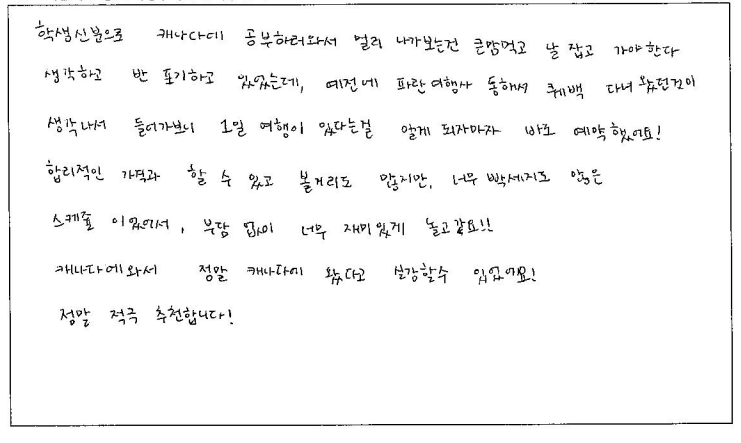 학생신분으로 캐나다에 공부하러와서 멀리 나가보는건 큰맘먹고 날 잡고 가야한다
생각하고 반 포기하고 있었는데, 예전에 파란여행사 통해서 퀘백 다녀왔던것이
생각나서 들어가보니 1일 여행이 있다는걸 알게 되자마자 바로 예약했어요!
합리적인 가격과 할 수 있고 볼거리도 많지만, 너무 빡세지도 않은
스케쥴 이었어서, 부담 없이 너무 재미있게 놀고갑요!!
캐나다에와서 정말 캐나다에 왔다고 실감할수 있었어요!
정말 적극 추천합니다!